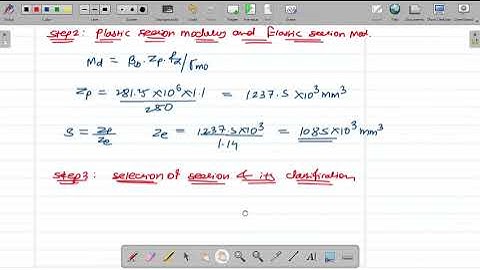 Step2: Plastic section modulus and Elastic section Mod.
Md = βb. Zp. fy/γmo
Zp = 281.5 × 10⁶ × 1.1 / 250 = 1237.5 × 10³ mm³
S = Zp/Ze Ze = 1237.5 × 10³ / 1.14 = 1085 × 10³ mm³
Step3: selection of section & its classification